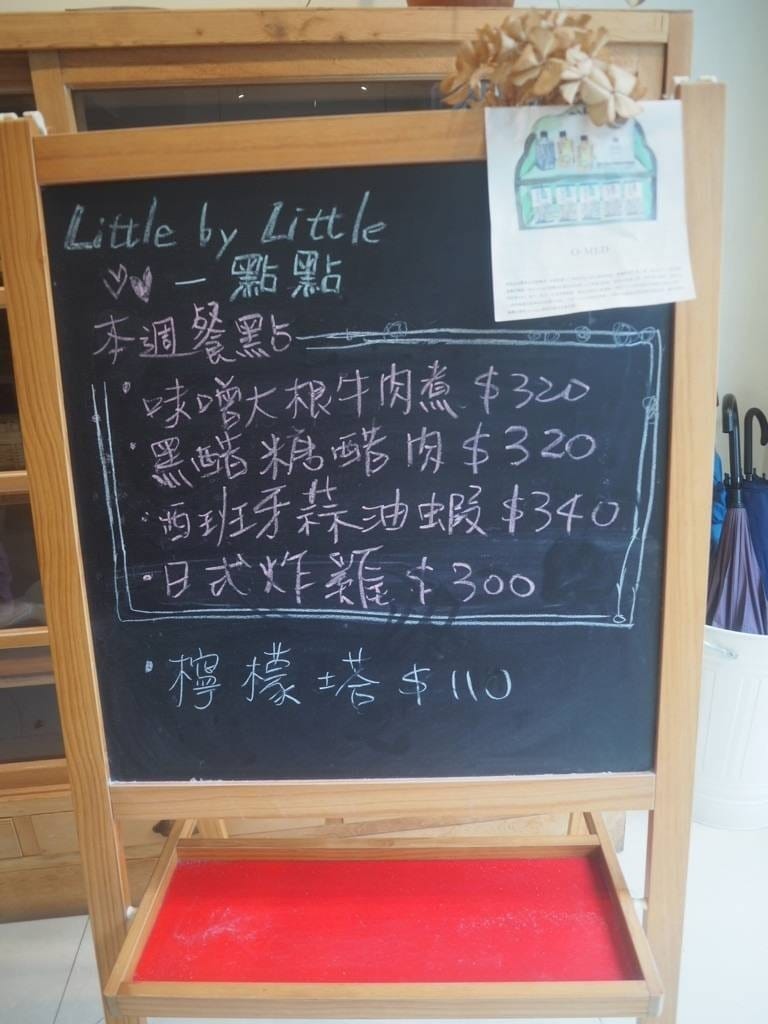 Little by Little
一 點點
本週餐點
· 味噌大根牛肉煮 $320
· 黑醋糖醋肉 $320
· 西班牙蒜油蝦 $340
· 日式炸雞 $300
· 檸檬塔 $110
O-MED